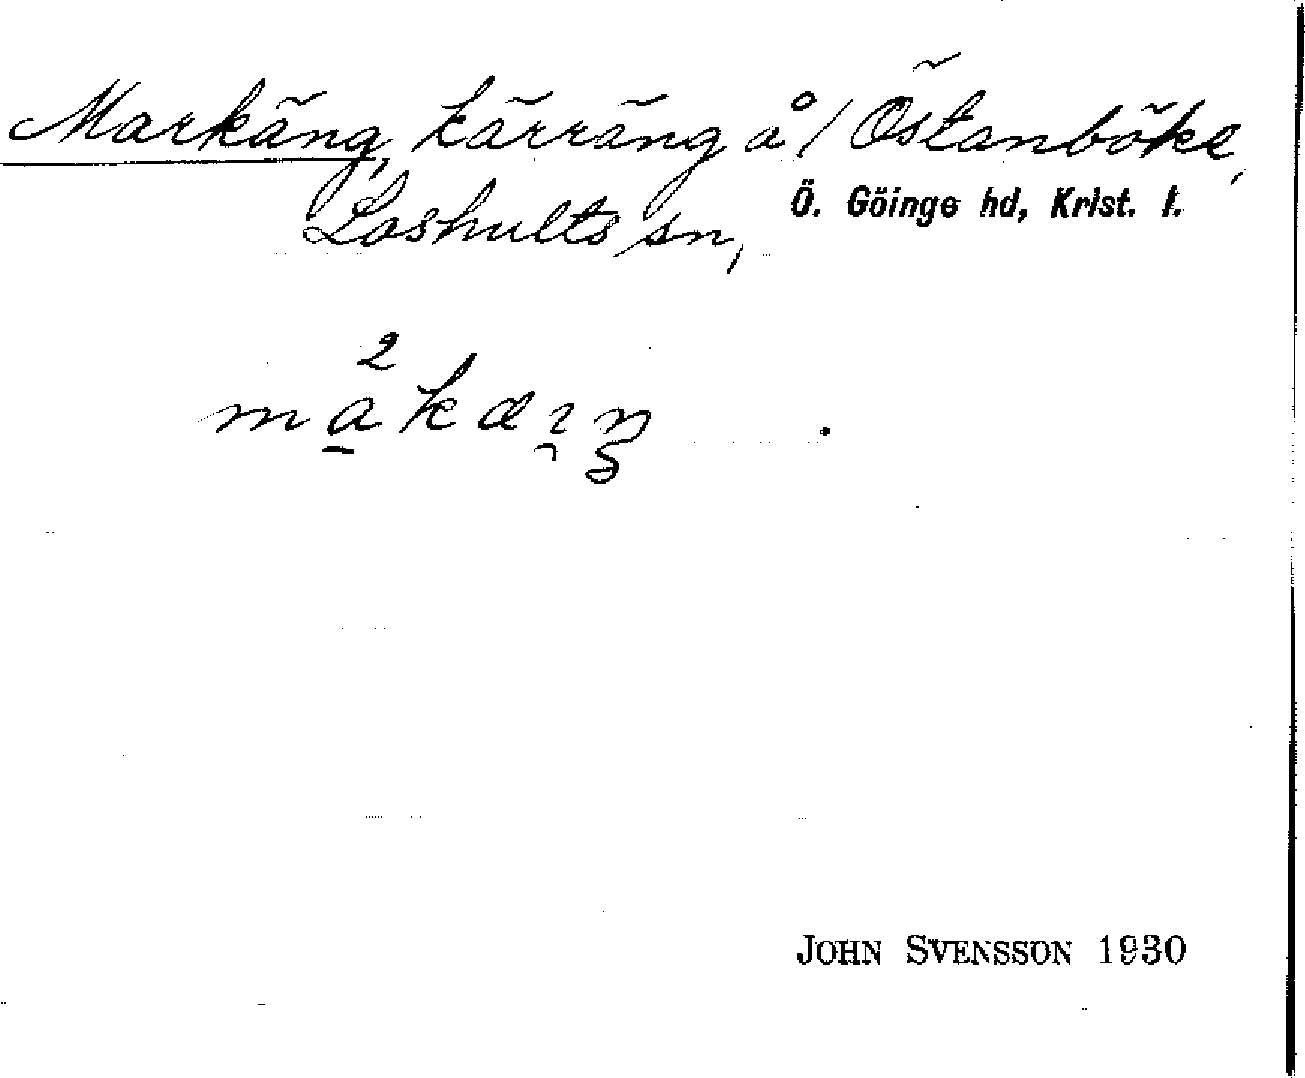 Markäng, kärräng å / Östanböke,
Loshults sn, Ö. Göinge hd, Krist. l.
2
makæıŋ .
JOHN SVENSSON 1930